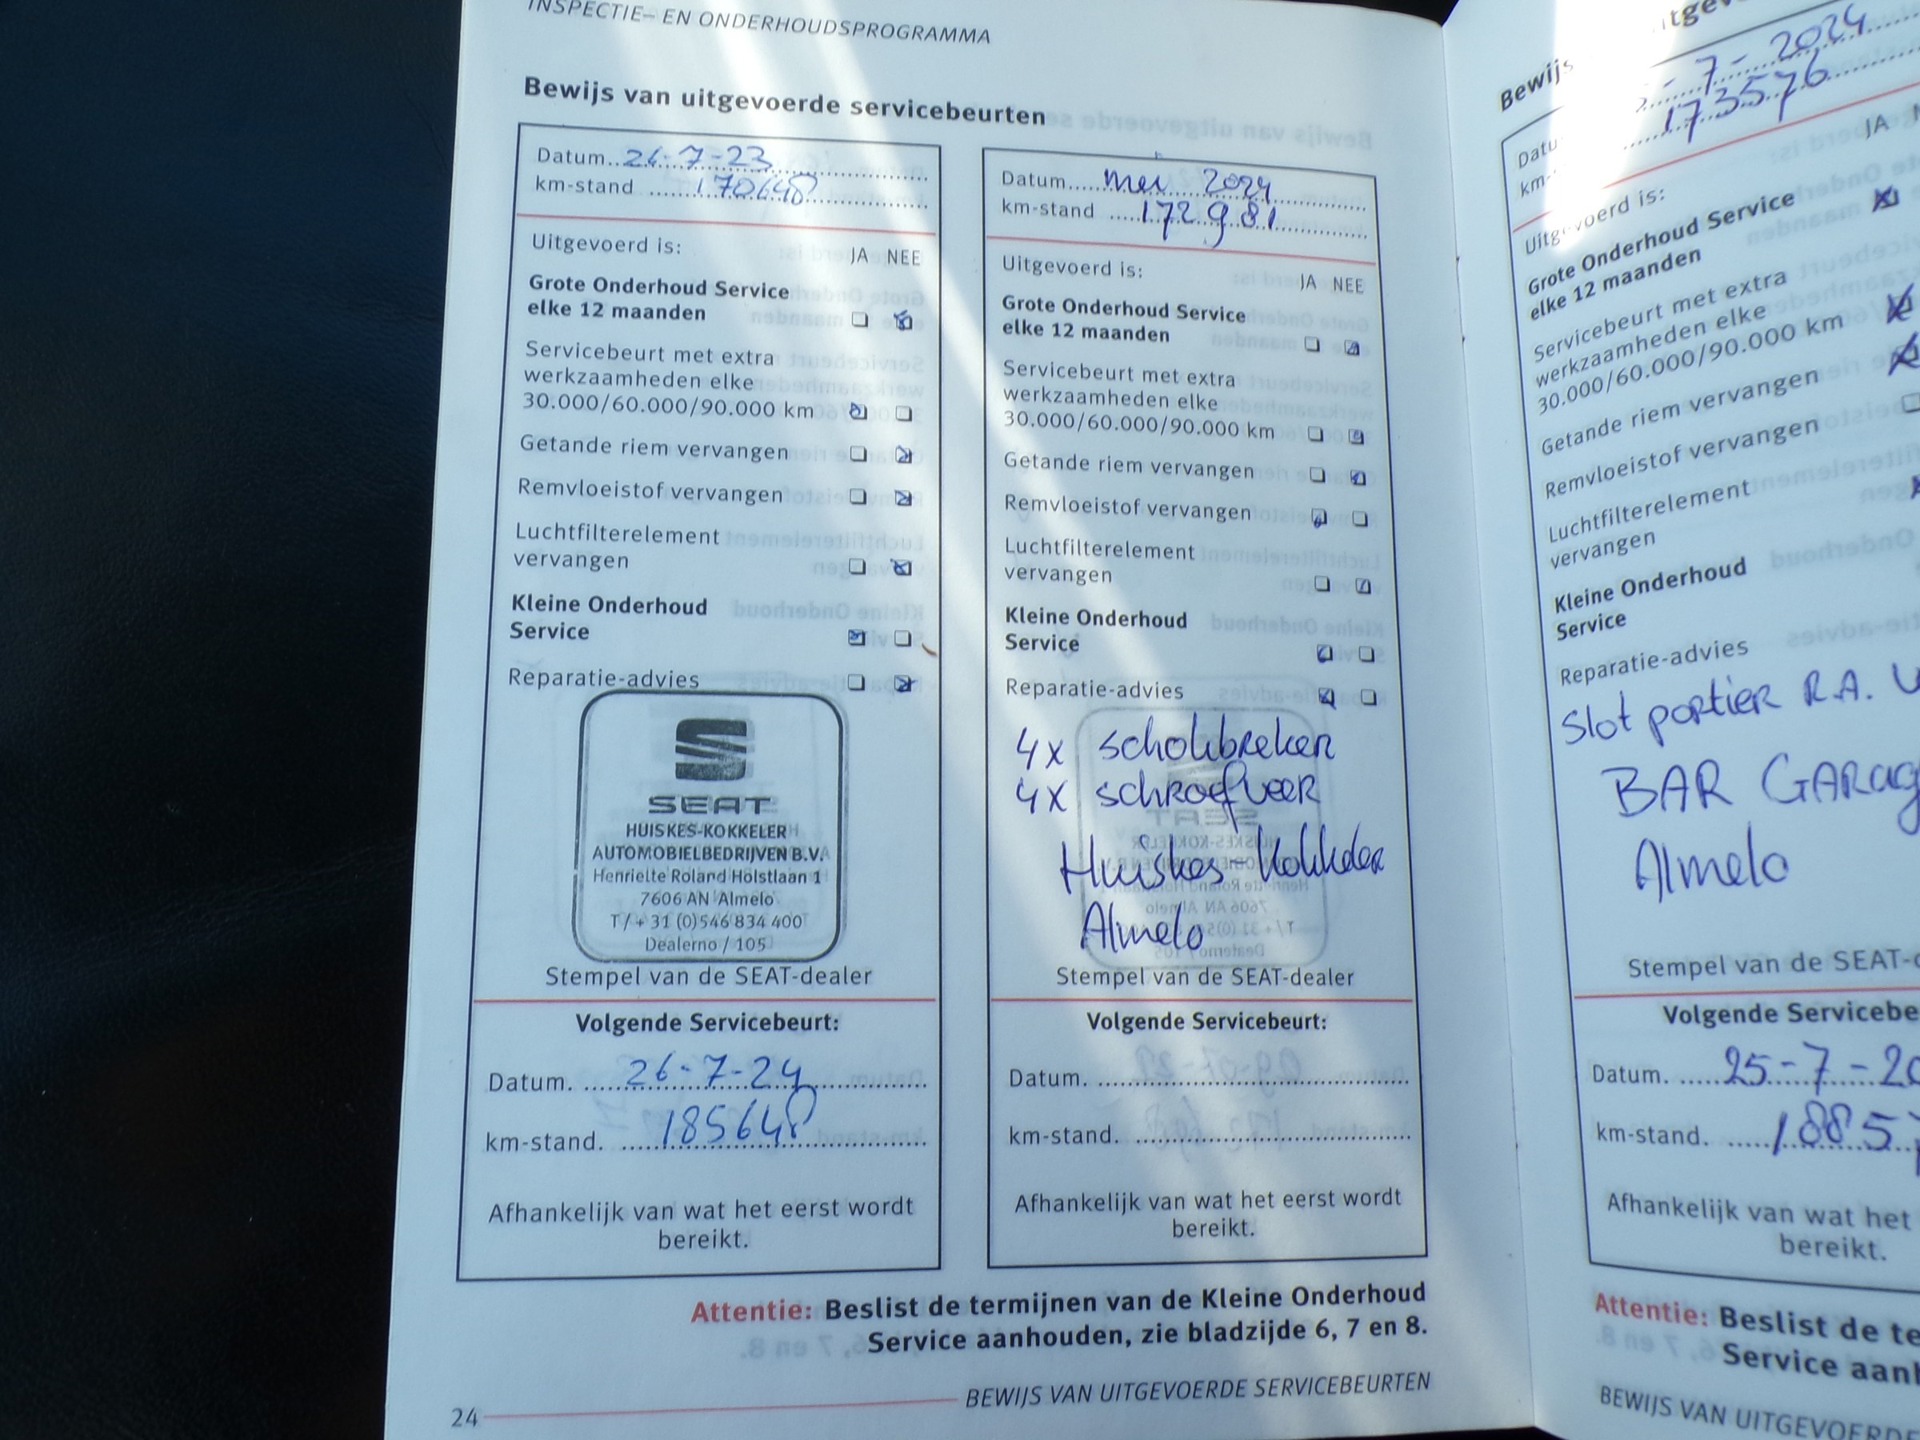 INSPECTIE– EN ONDERHOUDSPROGRAMMA
Bewijs van uitgevoerde servicebeurten
Datum..26-7-23
km-stand ....170648
Uitgevoerd is:
JA NEE
Grote Onderhoud Service
elke 12 maanden
Servicebeurt met extra
werkzaamheden elke
30.000/60.000/90.000 km
Getande riem vervangen
Remvloeistof vervangen
Luchtfilterelement
vervangen
Kleine Onderhoud
Service
Reparatie-advies
SEAT
HUISKES-KOKKELER
AUTOMOBIELBEDRIJVEN B.V.
Henriette Roland Holstlaan 1
7606 AN Almelo
T / + 31 (0)546 834 400
Dealerno / 105
Stempel van de SEAT-dealer
Volgende Servicebeurt:
Datum. ....26-7-24
km-stand. ....185648
Afhankelijk van wat het eerst wordt
bereikt.
Datum....mei 2024
km-stand ....172981
Uitgevoerd is:
JA NEE
Grote Onderhoud Service
elke 12 maanden
Servicebeurt met extra
werkzaamheden elke
30.000/60.000/90.000 km
Getande riem vervangen
Remvloeistof vervangen
Luchtfilterelement
vervangen
Kleine Onderhoud
Service
Reparatie-advies
4x schokbreker
4x schroefveer
Huiskes Kokkeler
Almelo
Stempel van de SEAT-dealer
Volgende Servicebeurt:
Datum.
km-stand.
Afhankelijk van wat het eerst wordt
bereikt.
Attentie: Beslist de termijnen van de Kleine Onderhoud
Service aanhouden, zie bladzijde 6, 7 en 8.
24
BEWIJS VAN UITGEVOERDE SERVICEBEURTEN
Bewijs
-7-2024
173576
JA
Uitgevoerd is:
Grote Onderhoud Service
elke 12 maanden
Servicebeurt met extra
werkzaamheden elke
30.000/60.000/90.000 km
Getande riem vervangen
Remvloeistof vervangen
Luchtfilterelement
vervangen
Kleine Onderhoud
Service
Reparatie-advies
Slot portier R.A.
BAR GARag
Almelo
Stempel van de SEAT-
Volgende Servicebe
Datum. ....25-7-20
km-stand. ....1885
Afhankelijk van wat het
bereikt.
Attentie: Beslist de te
Service aanh
BEWIJS VAN UITGEVOERDE